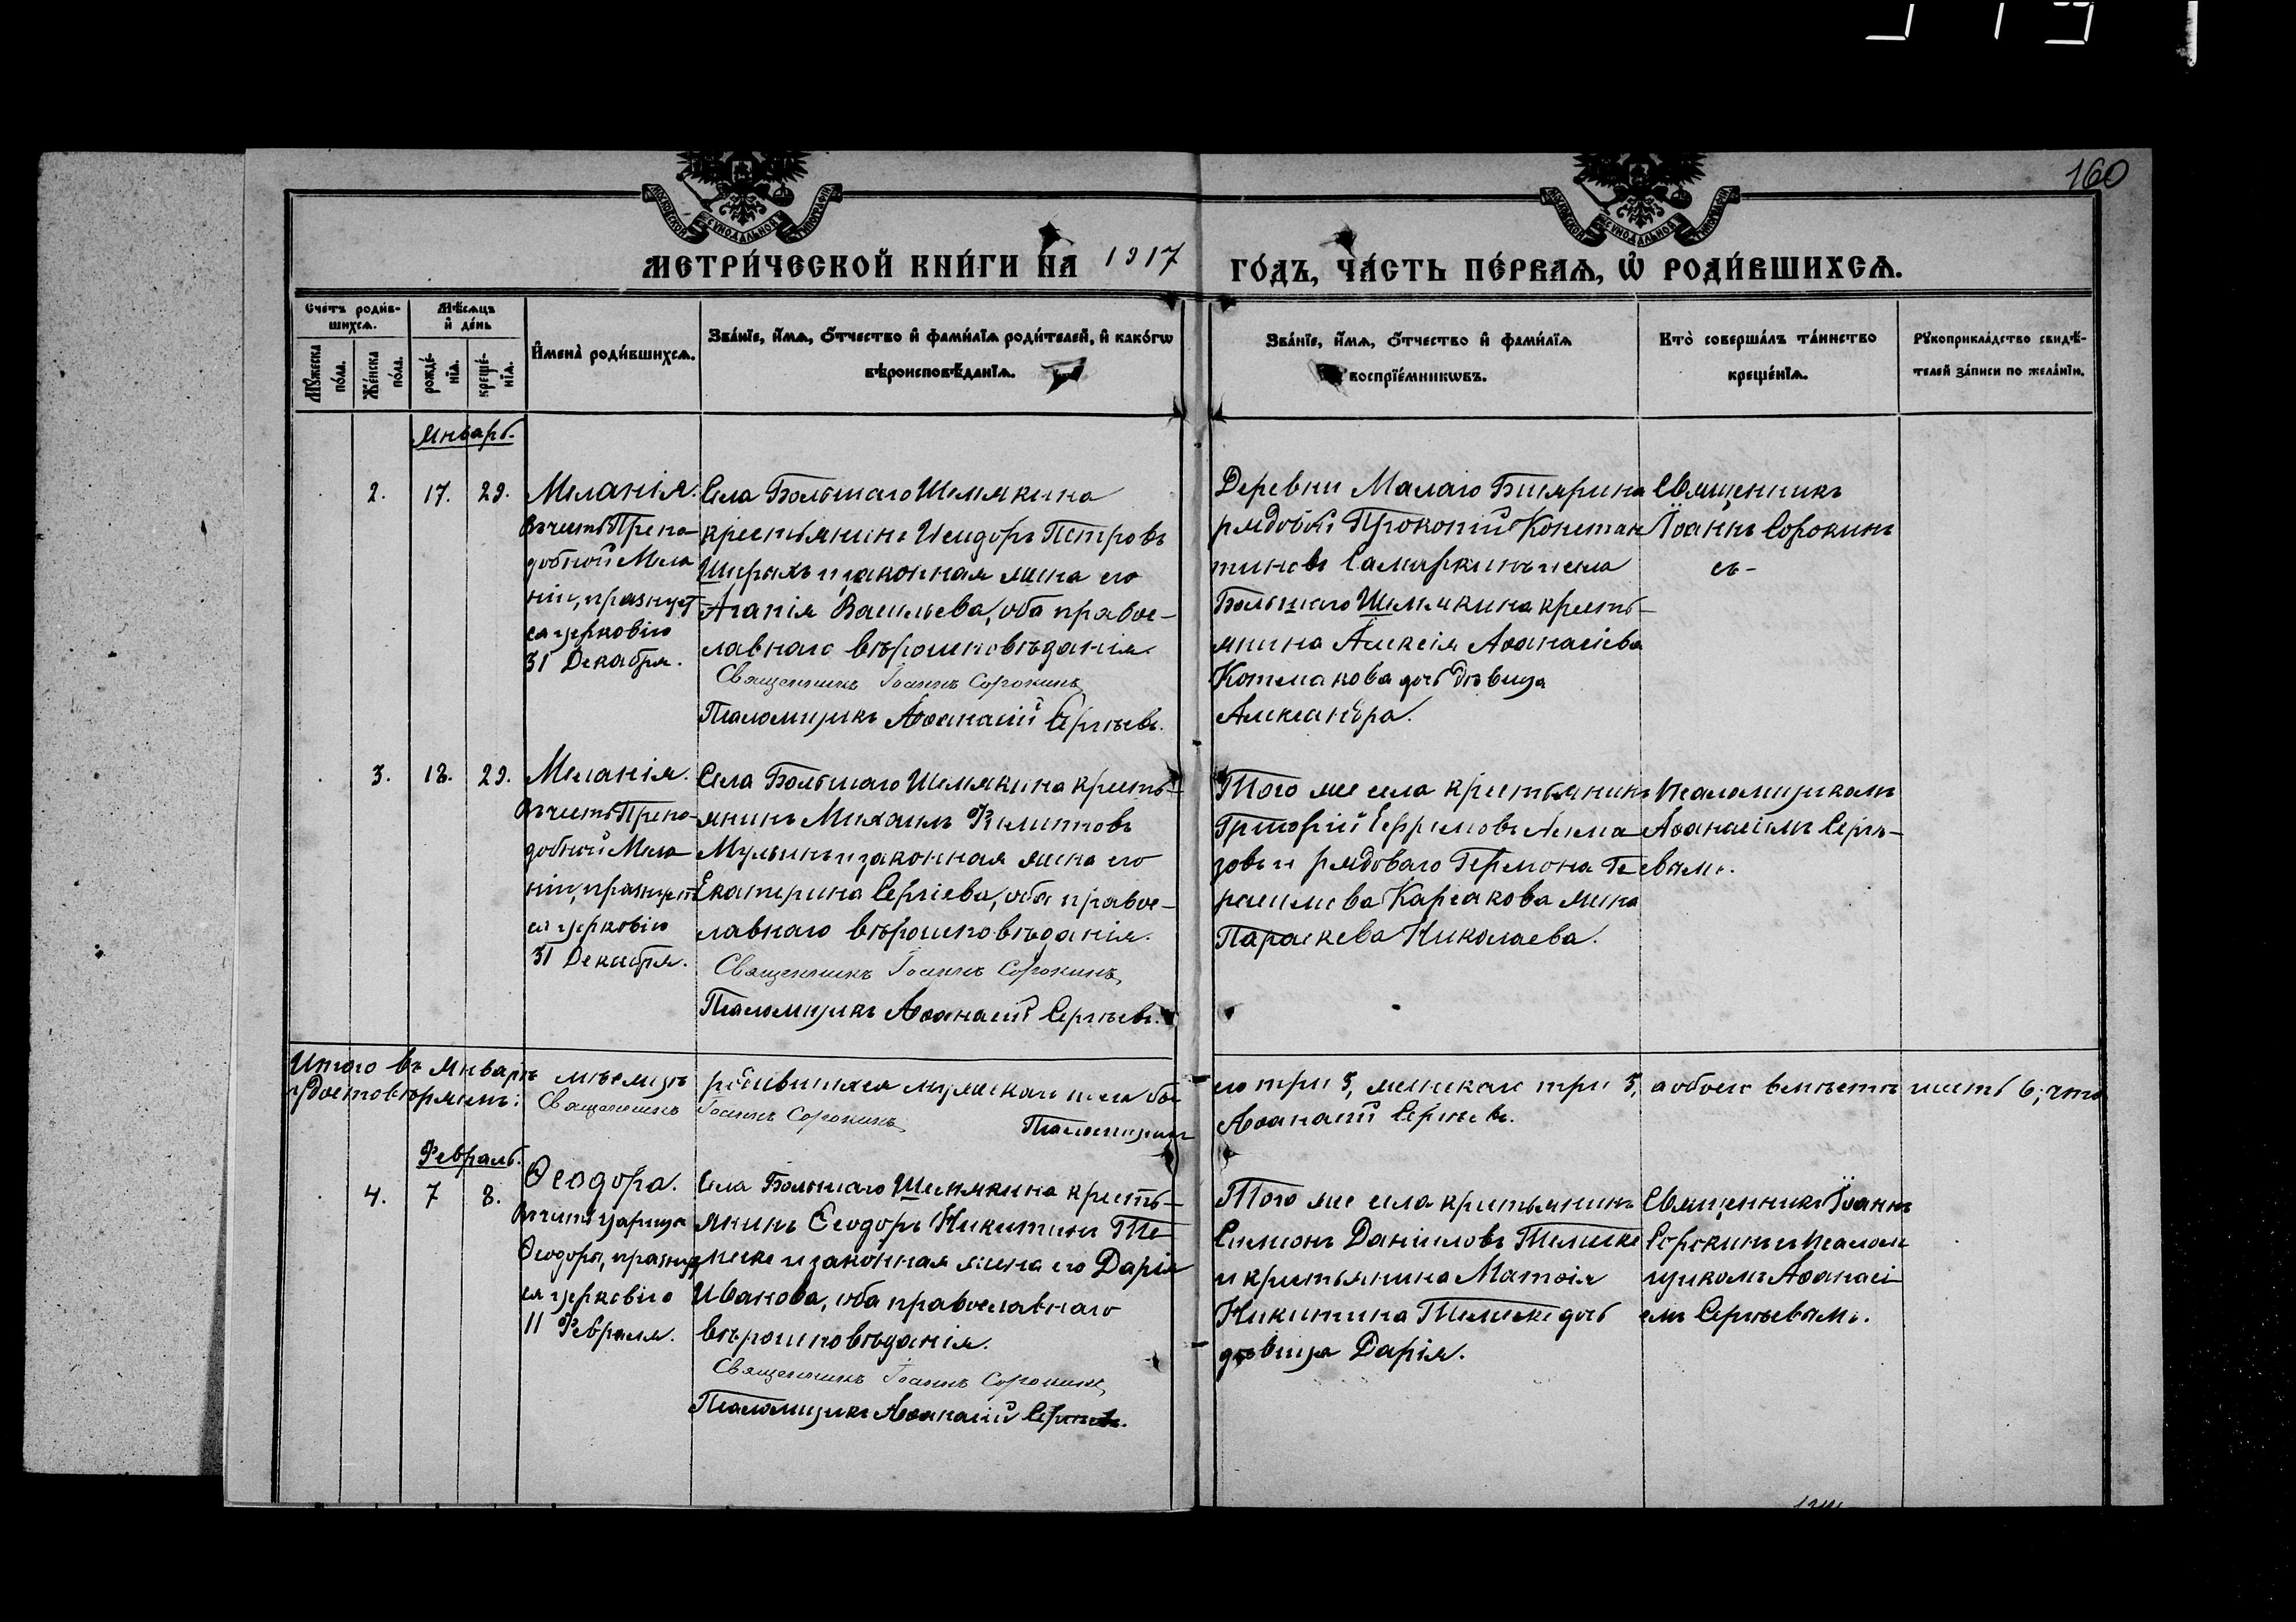 160
МЕТРИ́ЧЕСКОЙ КНИ́ГИ НА 1917 ГО́ДЪ, ЧА́СТЬ ПЕ́РВАѦ, Ѡ҆ РОДИ́ВШИХСѦ.
Сче́тъ роди́в-
шихсѧ.
Мѣ́сѧцъ
и҆ де́нь
Мꙋ́жеска
по́ла.
Же́нска
по́ла.
рожде́-
нїѧ.
креще́-
нїѧ.
И҆мена̀ роди́вшихсѧ.
Зва́нїе, и҆́мѧ, ѻ҆́тчество и҆ фами́лїѧ роди́телей, и҆ како́гѡ
вѣроисповѣ́данїѧ.
Зва́нїе, и҆́мѧ, ѻ҆́тчество и҆ фами́лїѧ
воспрїе́мникѡвъ.
Кто̀ соверша́лъ та́инство
креще́нїѧ.
Рꙋкоприкла́дство свидѣ́-
телей за́писи по жела́нїю.
Январь.
2. 17. 29.
Меланія.
Въ честь Препо-
добной Мела
ніи, празнует
ся церковію
31 Декабря.
Села Большаго Шемякина
крестьянинъ Исидоръ Петровъ
Ширяхъ и законная жена его
Агапія Васильева, оба правос-
лавнаго вѣроисповѣданія.
Священникъ Іоаннъ Сорокинъ
Псаломщикъ Аѳанасій Сергѣевъ.
Деревни Малаго Бишрина
рядовой Прокопій Констан
тиновъ Самаркинъ и села
Большаго Шемякина кресть-
янина Алексія Аѳанасіева
Котмакова дочь дѣвица
Александра.
Священникъ
Іоаннъ Сорокинъ
съ-
3. 18. 29.
Меланія.
Въ честь Препо-
добной Мела
ніи, празнуетъ
ся церковію
31 Декабря.
Села Большаго Шемякина кресть-
янинъ Михаилъ Филиповъ
Мульинъ и законная жена его
Екатерина Сергіева, оба правос-
лавнаго вѣроисповѣданія.
Священникъ Іоаннъ Сорокинъ
Псаломщикъ Аѳанасій Сергѣевъ.
Того же села крестьянинъ
Григорій Ефремовъ Алма
зовъ и рядоваго Гермона Ге
расимова Каргакова жена
Параскева Николаева.
псаломщикомъ
Аѳанасіемъ Сергѣ-
евымъ.
Итого въ Январѣ мѣсяцѣ родившихся мужескаго пола бы
ло три 3, женскаго три 3, а обоего вмѣстѣ шесть 6; что
удостовѣряемъ: Священникъ Іоаннъ Сорокинъ
Псаломщикъ Аѳанасій Сергѣевъ.
Февраль.
4. 7 8.
Ѳеодора.
Въ честь царицы
Ѳеодоры, празнует
ся церковію
11 Февраля.
Села Большаго Шемякина кресть-
янинъ Ѳеодоръ Никитинъ Те
лешке и законная жена его Дарія
Иванова, оба православнаго
вѣроисповѣданія.
Священникъ Іоаннъ Сорокинъ
Псаломщикъ Аѳанасій Сергѣевъ.
Того же села крестьянинъ
Симеонъ Даніиловъ Телешке
и крестьянина Матѳія
Никитина Телешке дочь
дѣвица Дарія.
Священникъ Іоаннъ
Сорокинъ и псалом
щикомъ Аѳанасі
емъ Сергѣевымъ.